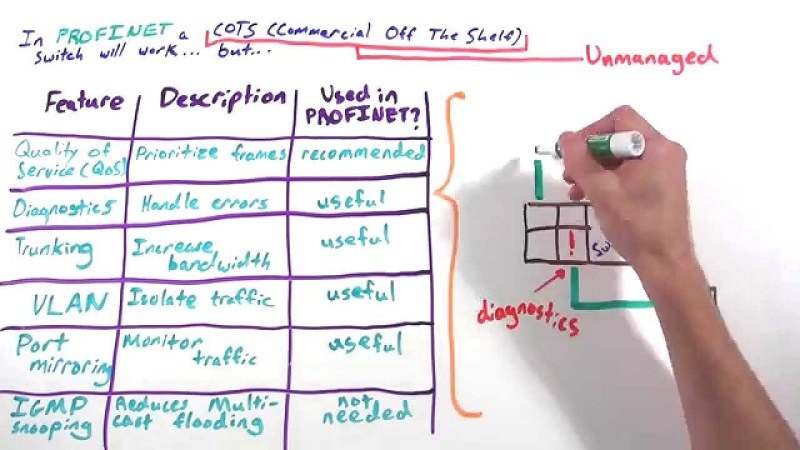 In PROFINET a COTS (Commercial Off The Shelf)
switch will work... but...
Unmanaged
Feature Description Used in PROFINET?
Quality of Service (QoS) Prioritize frames recommended
Diagnostics Handle errors useful
Trunking Increase bandwidth useful
VLAN Isolate traffic useful
Port mirroring Monitor traffic useful
IGMP snooping Reduces Multi-cast flooding not needed
!
diagnostics